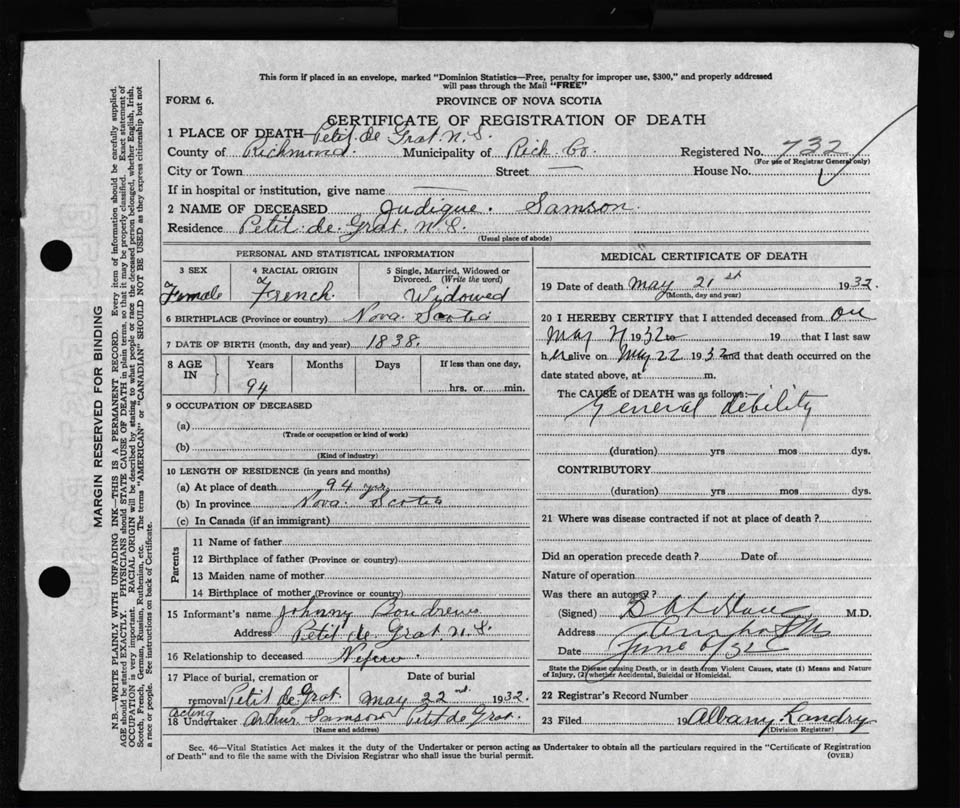 This form if placed in an envelope, marked "Dominion Statistics—Free, penalty for improper use, $300," and properly addressed
will pass through the Mail "FREE"
FORM 6. PROVINCE OF NOVA SCOTIA
CERTIFICATE OF REGISTRATION OF DEATH
1 PLACE OF DEATH—Petit de Grat. N. S.
County of Richmond. Municipality of Rich. Co. Registered No. 732
(For use of Registrar General only)
City or Town Street — House No.
If in hospital or institution, give name —
2 NAME OF DECEASED Judique. Samson.
Residence Petit. de. Grat. N. S.
(Usual place of abode)
PERSONAL AND STATISTICAL INFORMATION
3 SEX 4 RACIAL ORIGIN 5 Single, Married, Widowed or
Divorced. (Write the word)
Female French. Widowed
6 BIRTHPLACE (Province or country) Nova Scotia
7 DATE OF BIRTH (month, day and year) 1838.
8 AGE IN Years Months Days If less than one day,
94 hrs. or min.
9 OCCUPATION OF DECEASED
(a)
(Trade or occupation or kind of work)
(b)
(Kind of industry)
10 LENGTH OF RESIDENCE (in years and months)
(a) At place of death 94 yrs
(b) In province Nova. Scotia
(c) In Canada (if an immigrant)
Parents
11 Name of father
12 Birthplace of father (Province or country)
13 Maiden name of mother
14 Birthplace of mother (Province or country)
15 Informant's name Johnny Boudreau
Address Petit de Grat. N. S.
16 Relationship to deceased
17 Place of burial, cremation or Date of burial
removal Petit de Grat. May 22nd. 1932.
acting
18 Undertaker Arthur Samson Petit de Grat.
(Name and address)
MEDICAL CERTIFICATE OF DEATH
19 Date of death May 21st 1932.
(Month, day and year)
20 I HEREBY CERTIFY that I attended deceased from on
May 1932 to 19 that I last saw
her alive on May 22 1932 and that death occurred on the
date stated above, at m.
The CAUSE of DEATH was as follows:—
General debility
(duration) yrs mos dys.
CONTRIBUTORY
(duration) yrs. mos. dys.
21 Where was disease contracted if not at place of death?
Did an operation precede death? Date of
Nature of operation
Was there an autopsy?
(Signed) M.D.
Address
Date June 6/32
State the Disease causing Death, or in death from Violent Causes, state (1) Means and Nature
of Injury, (2) whether Accidental, Suicidal or Homicidal.
22 Registrar's Record Number
23 Filed 19 Albany Landry
(Division Registrar)
Sec. 46—Vital Statistics Act makes it the duty of the Undertaker or person acting as Undertaker to obtain all the particulars required in the "Certificate of Registration
of Death" and to file the same with the Division Registrar who shall issue the burial permit. (OVER)
MARGIN RESERVED FOR BINDING
N.B.—WRITE PLAINLY WITH UNFADING INK—THIS IS A PERMANENT RECORD. Every item of information should be carefully supplied.
AGE should be stated EXACTLY. PHYSICIANS should STATE CAUSE OF DEATH in plain terms, so that it may be properly classified. Exact statement of
OCCUPATION is very important. RACIAL ORIGIN will be described by stating to what people or race the deceased person belonged, whether English, Irish,
Scotch, French, German, Russian, Ruthenian, etc. The terms "AMERICAN" or "CANADIAN" SHOULD NOT BE USED as they express citizenship but not
a race or people. See instructions on back of Certificate.